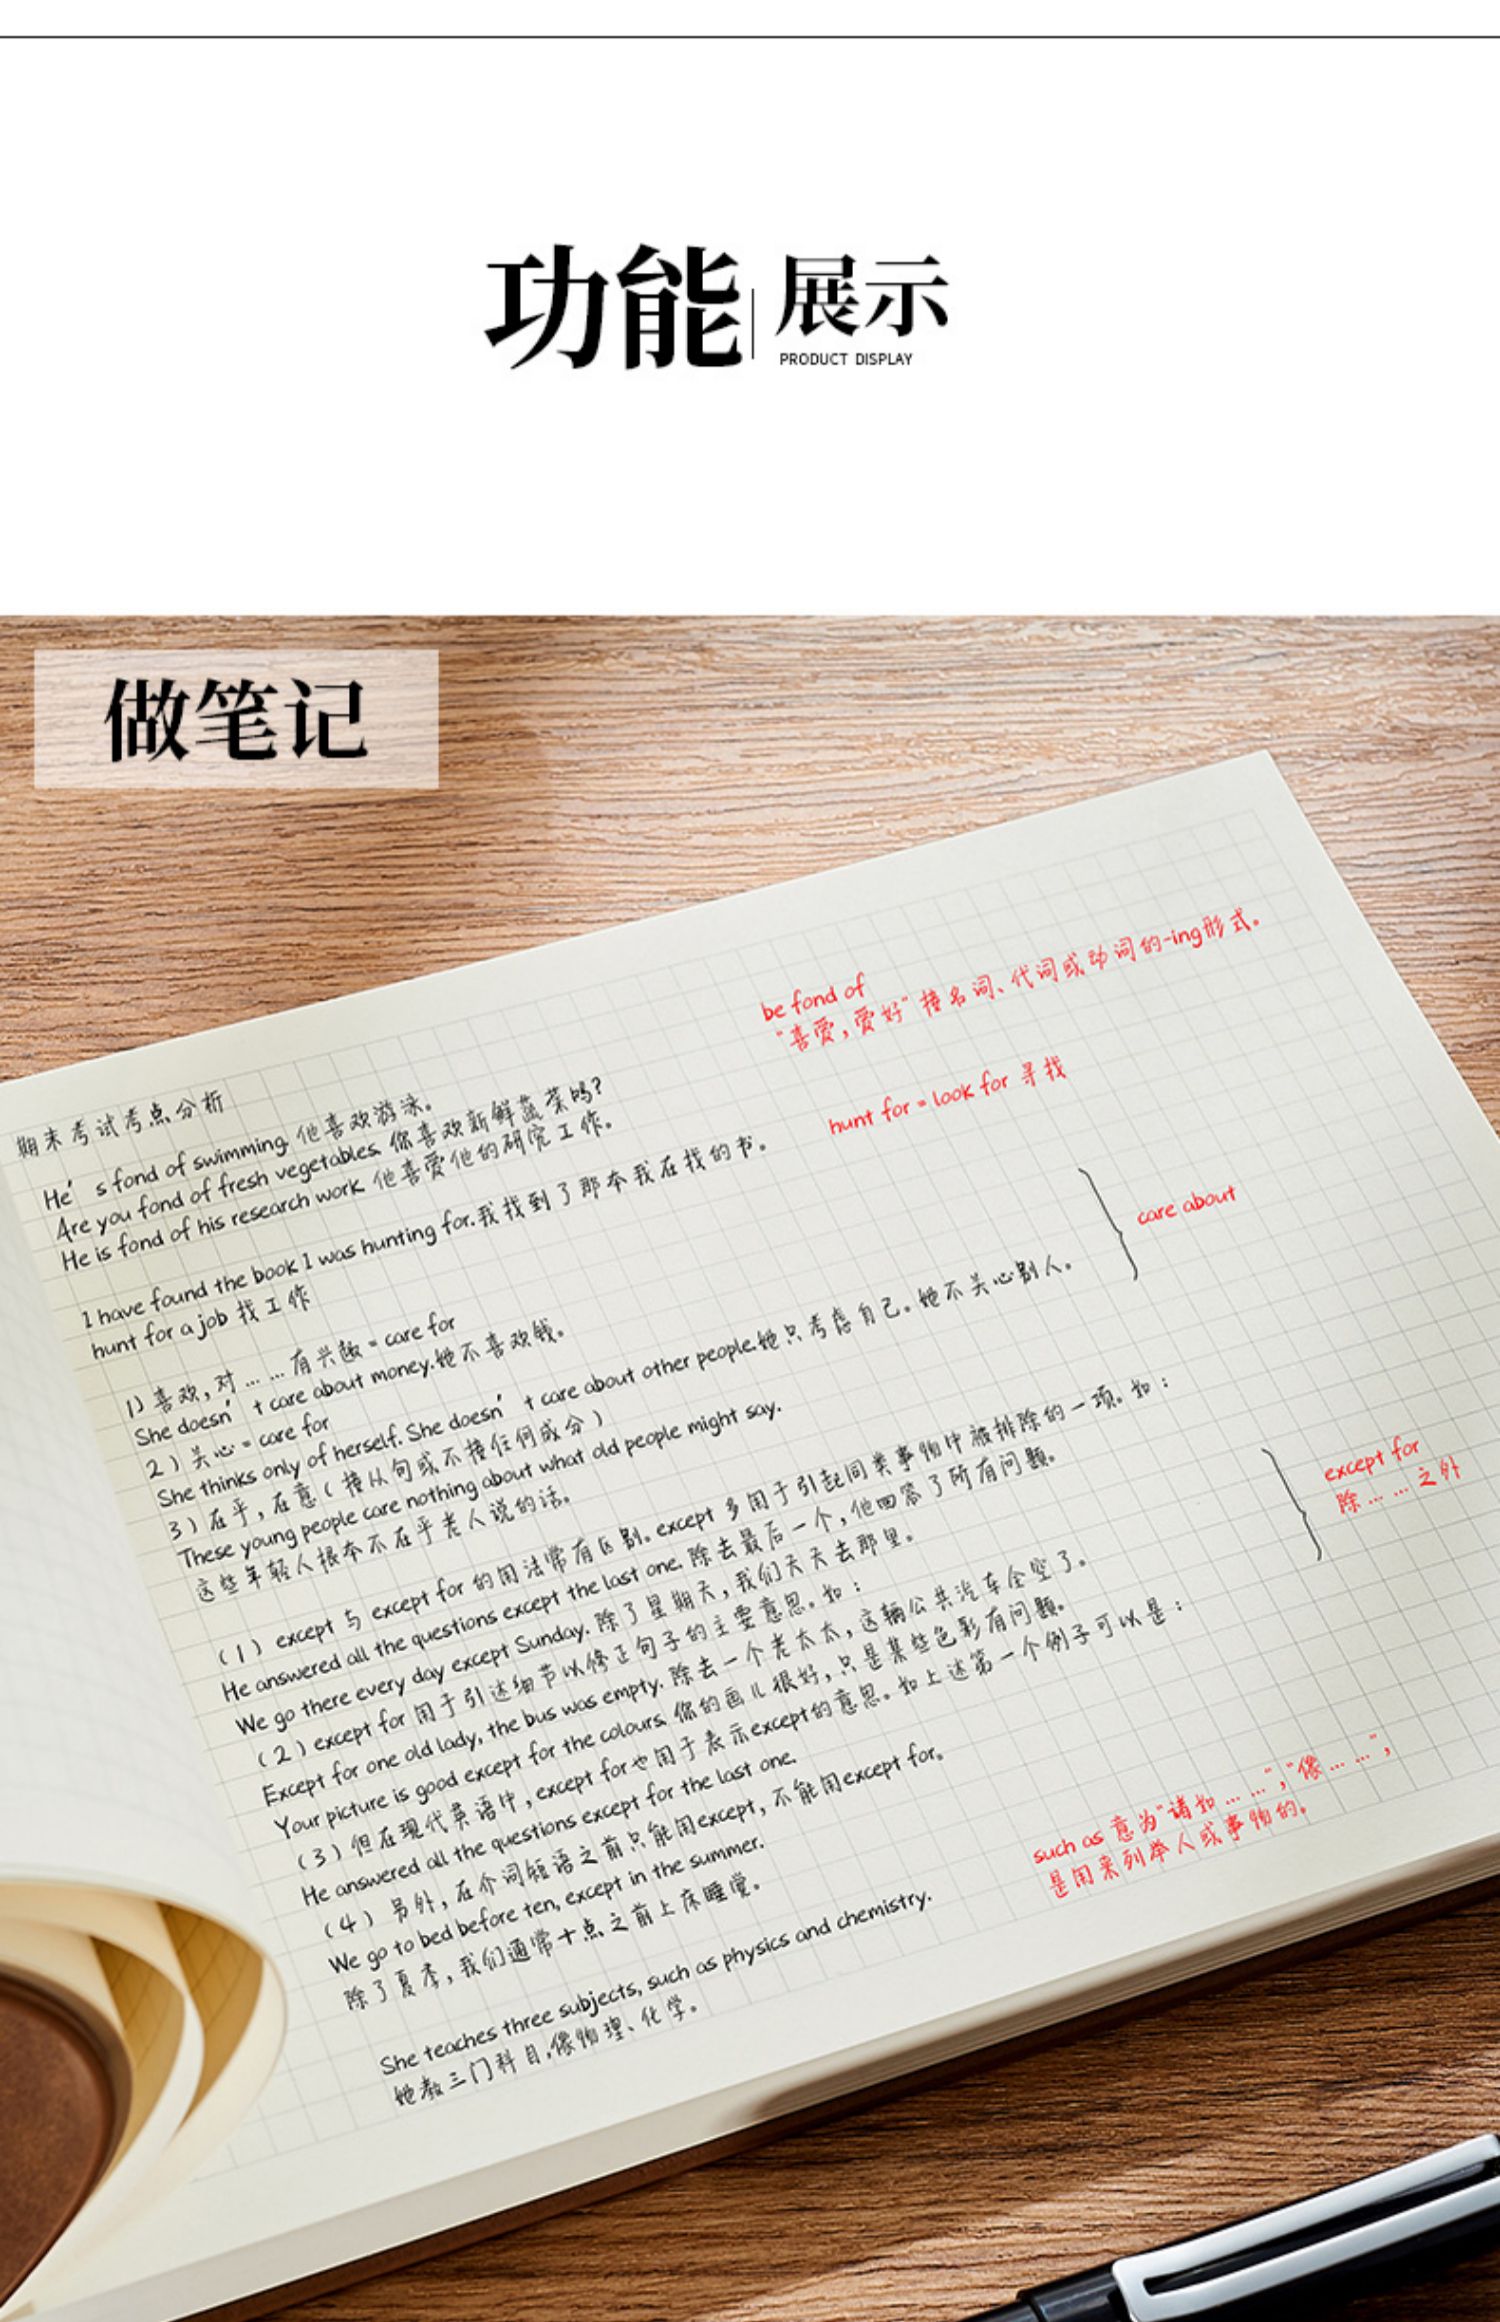 功能
展示
PRODUCT DISPLAY
做笔记
be fond of
"喜爱，爱好"接名词、代词或动词的-ing形式。
hunt for = look for 寻找
care about
期末考试考点分析
He's fond of swimming. 他喜欢游泳。
Are you fond of fresh vegetables. 你喜欢新鲜蔬菜吗?
He is fond of his research work. 他喜爱他的研究工作。
I have found the book I was hunting for.我找到了那本我在找的书。
hunt for a job 找工作
1）喜欢，对……有兴趣 = care for
She doesn't care about money.她不喜欢钱。
2）关心 = care for
She thinks only of herself. She doesn't care about other people.她只考虑自己。她不关心别人。
3）在乎，在意（接从句或不接任何成分）
These young people care nothing about what old people might say.
这些年轻人根本不在乎老人说的话。
（1）except 与 except for 的用法常有区别。except 多用于引起同类事物中被排除的一项。如：
He answered all the questions except the last one. 除去最后一个，他回答了所有问题。
We go there every day except Sunday. 除了星期天，我们天天去那里。
（2）except for 用于引述细节以修正句子的主要意思。如：
Except for one old lady, the bus was empty. 除去一个老太太，这辆公共汽车全空了。
Your picture is good except for the colours. 你的画儿很好，只是某些色彩有问题。
（3）但在现代英语中，except for也用于表示except的意思。如上述第一个例子可以是：
He answered all the questions except for the last one.
（4）另外，在介词短语之前只能用except，不能用except for。
We go to bed before ten, except in the summer.
除了夏季，我们通常十点之前上床睡觉。
She teaches three subjects, such as physics and chemistry.
她教三门科目，像物理、化学。
except for
除……之外
such as 意为"诸如……"，"像……"，
是用来列举人或事物的。